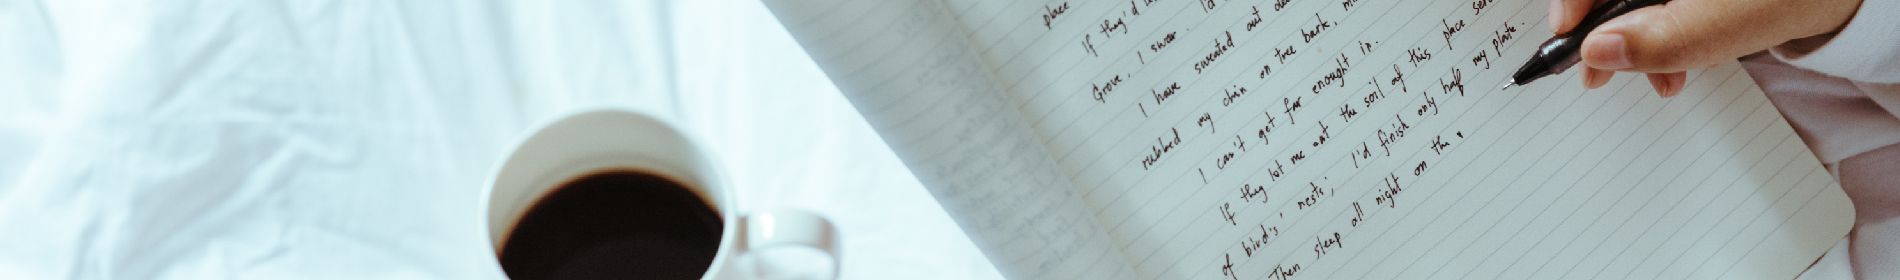 place
If they'd
Grove, I swear. I'd
I have sweated out
rubbed my chin on tree bark,
I can't get far enough in.
If they let me eat the soil of this place
of bird's nests; I'd finish only half my plate.
Then sleep all night on the